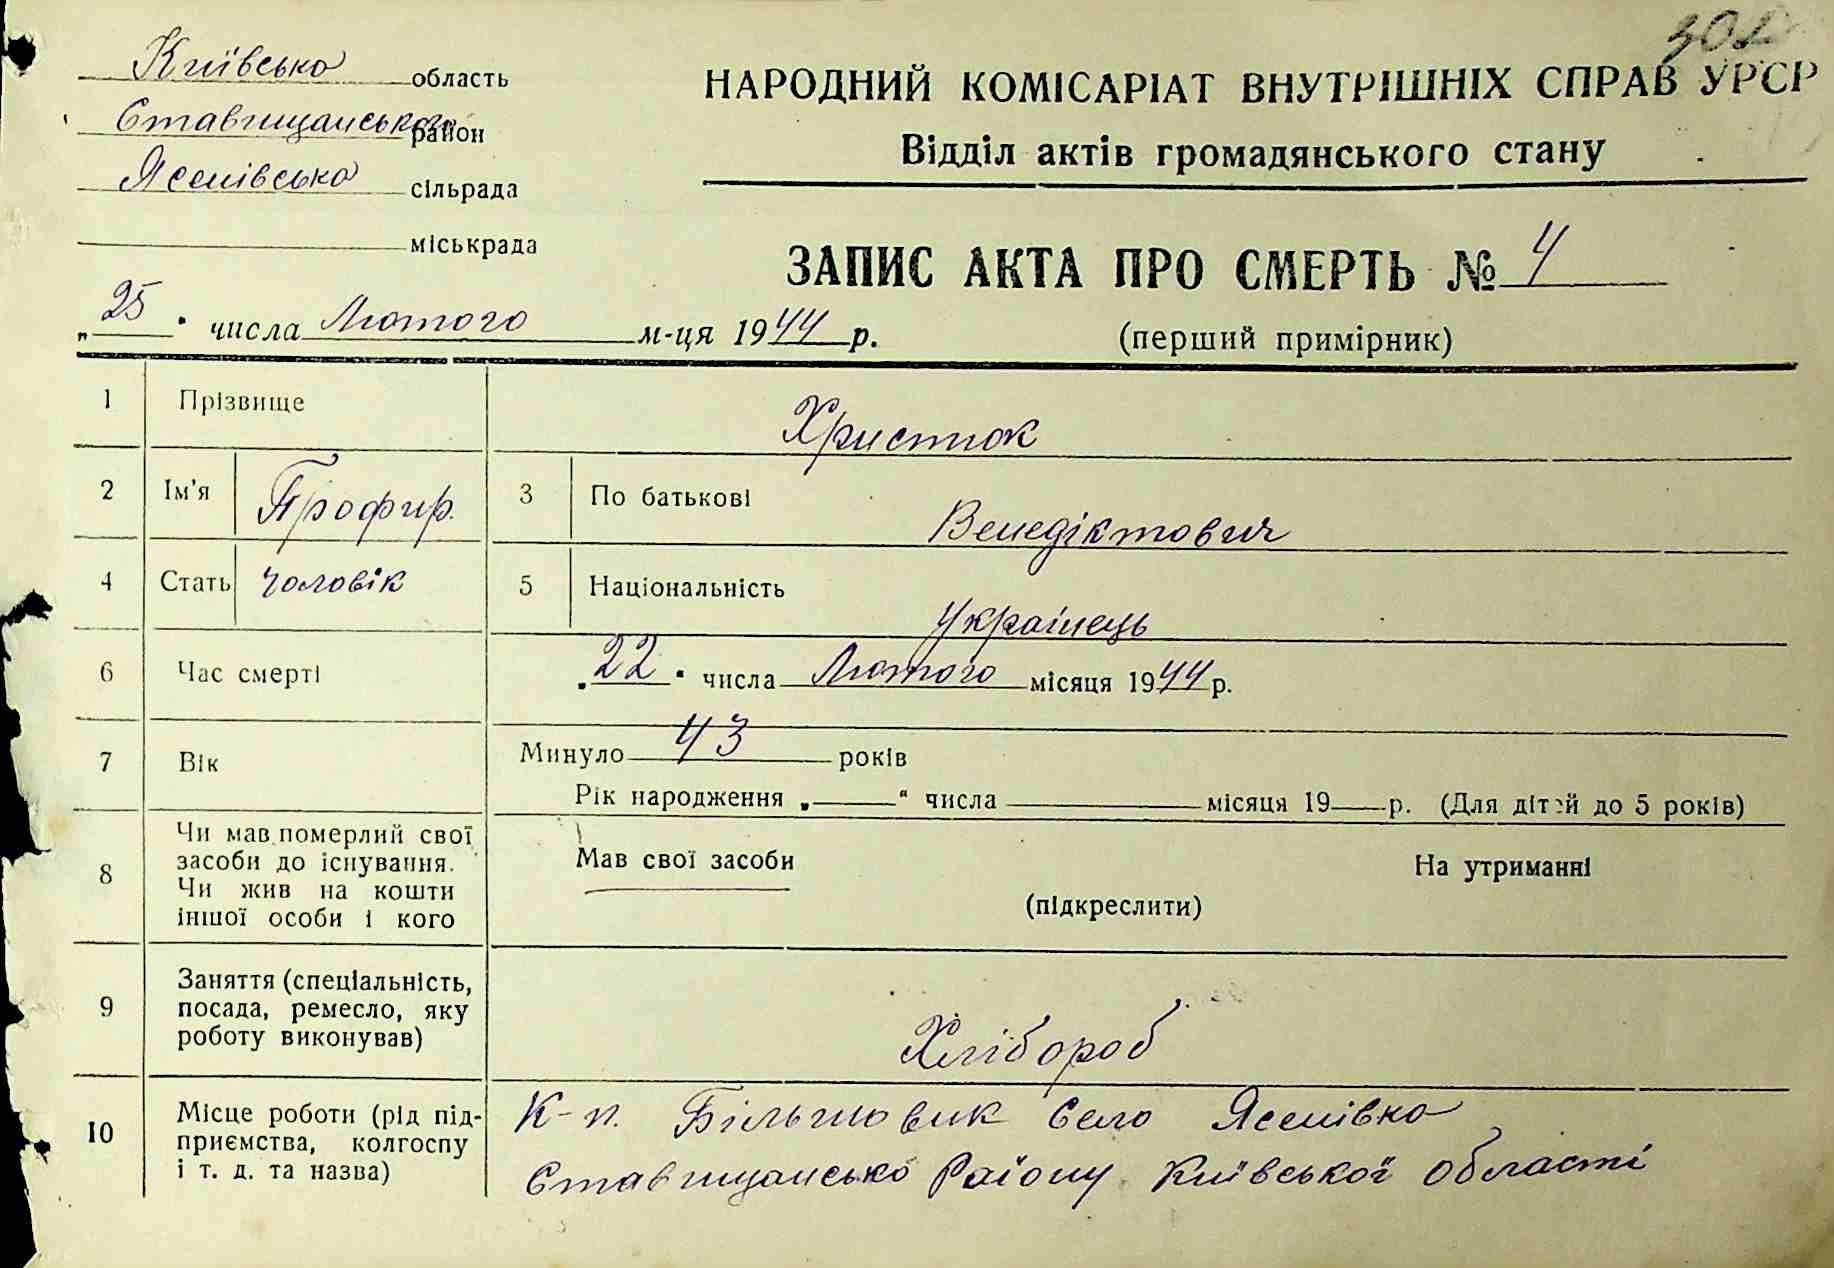 302
Київсько область
Ставищанського район
Ясенівсько сільрада
міськрада
НАРОДНИЙ КОМІСАРІАТ ВНУТРІШНІХ СПРАВ УРСР
Відділ актів громадянського стану
ЗАПИС АКТА ПРО СМЕРТЬ № 4
(перший примірник)
„25" числа Лютого м-ця 1944 р.
1 Прізвище Христюк
2 Ім'я Профир. 3 По батькові Венедіктович
4 Стать чоловік 5 Національність Українець
6 Час смерті „22" числа Лютого місяця 1944 р.
7 Вік Минуло 43 років
Рік народження „ " числа місяця 19 р. (Для дітей до 5 років)
8 Чи мав померлий свої
засоби до існування.
Чи жив на кошти
іншої особи і кого
Мав свої засоби На утриманні
(підкреслити)
9 Заняття (спеціальність,
посада, ремесло, яку
роботу виконував)
Хлібороб
10 Місце роботи (рід під-
приємства, колгоспу
і т. д. та назва)
К-п. Більшовик Село Ясенівко
Ставищансько Раіону Київської області